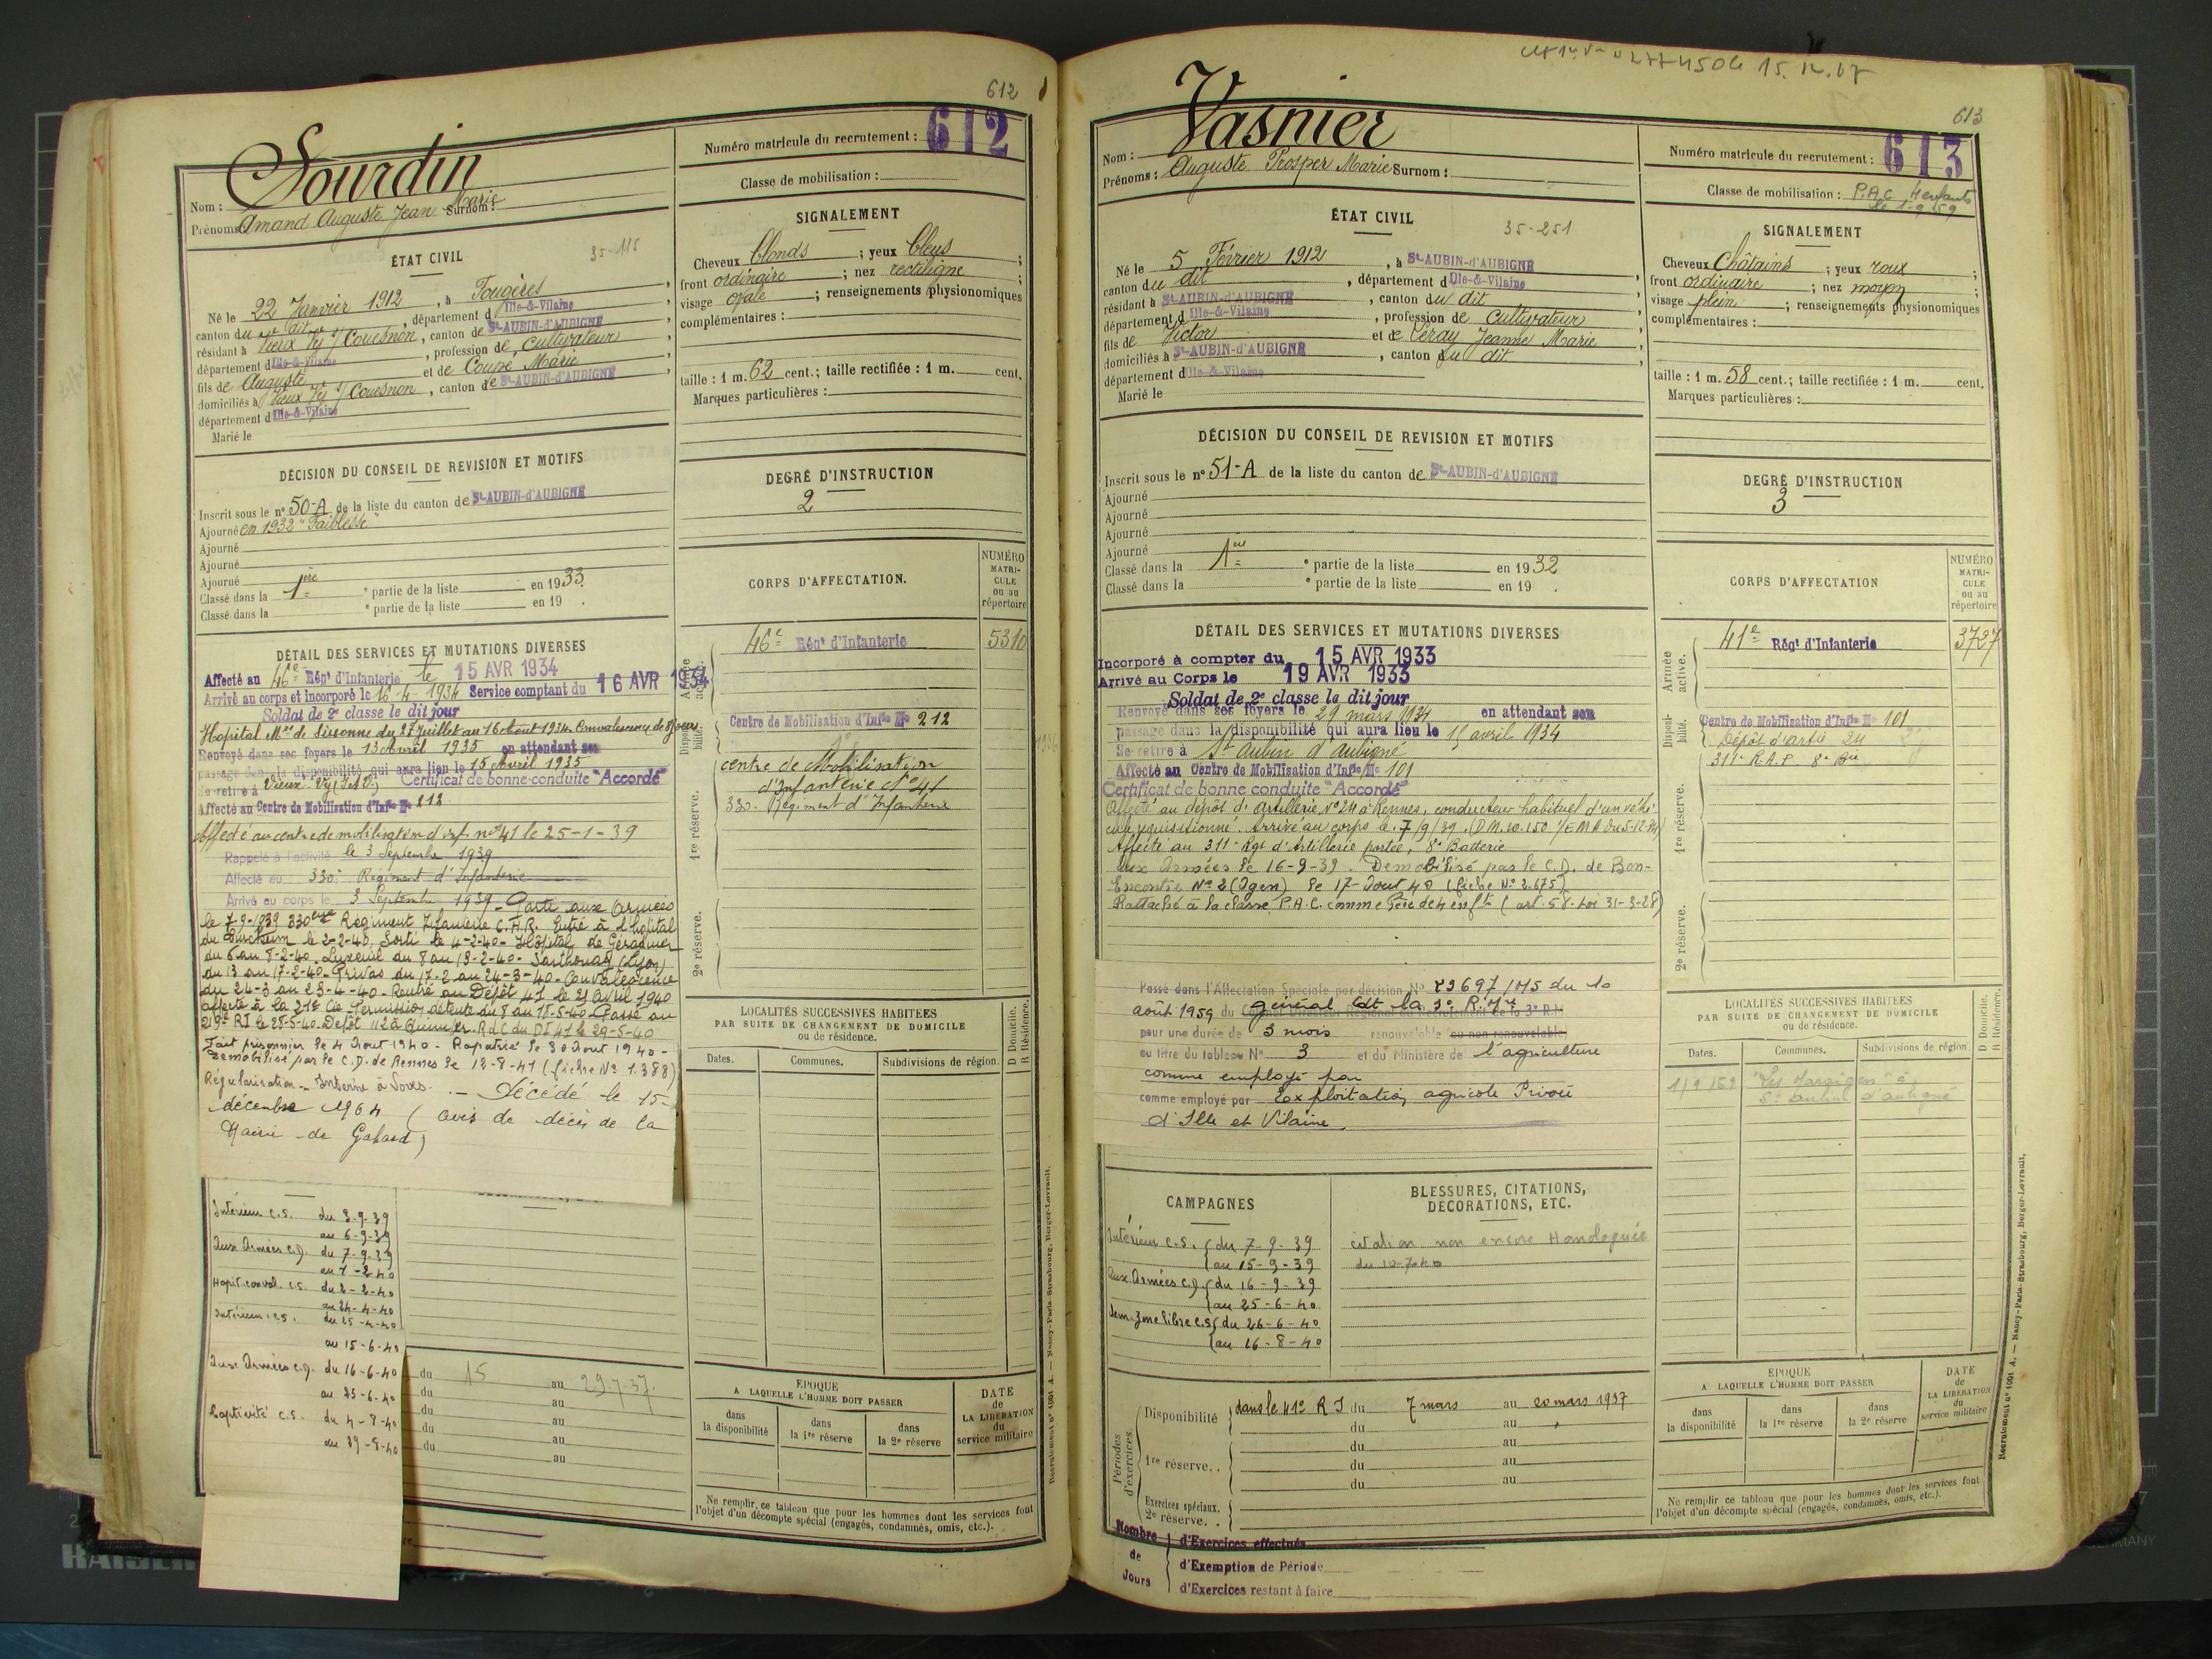 612
Sourdin
Nom :
Prénoms : Amand Auguste Jean Marie Surnom :
Numéro matricule du recrutement : 612
Classe de mobilisation :
ÉTAT CIVIL
35-115
Né le 22 Janvier 1912, à Fougères,
canton du dit, département d Ille-&-Vilaine,
résidant à Vieux Vy s/ Couesnon, canton de St-AUBIN-d'AUBIGNÉ
département d Ille-&-Vilaine, profession de cultivateur
fils de Auguste et de Coupé Marie,
domiciliés à Vieux Vy s/ Couesnon, canton de St-AUBIN-d'AUBIGNÉ
département d Ille-&-Vilaine
Marié le
SIGNALEMENT
Cheveux blonds ; yeux bleus ;
front ordinaire ; nez rectiligne ;
visage ovale ; renseignements physionomiques
complémentaires :
taille : 1 m. 62 cent.; taille rectifiée : 1 m. cent.
Marques particulières :
DÉCISION DU CONSEIL DE REVISION ET MOTIFS
Inscrit sous le n° 50-A de la liste du canton de St-AUBIN-d'AUBIGNÉ
Ajourné en 1932 "Faiblesse"
Ajourné
Ajourné
Ajourné
Classé dans la 1ère partie de la liste en 1933.
Classé dans la e partie de la liste en 19 .
DEGRÉ D'INSTRUCTION
2
DÉTAIL DES SERVICES ET MUTATIONS DIVERSES
Affecté au 46e Régt d'Infanterie le 15 AVR 1934
Arrivé au corps et incorporé le 16-4-1934 Service comptant du 16 AVR 1934
Soldat de 2e classe le dit jour
Hopital Mre de Sissonne du 27 Juillet au 16 Aout 1934. Convalescence de 8 jours.
Renvoyé dans ses foyers le 13 Avril 1935 en attendant son
passage dans la disponibilité qui aura lieu le 15 Avril 1935
Se retire à Vieux-Vy (I et V.) Certificat de bonne conduite "Accordé"
Affecté au Centre de Mobilisation d'Infie N° 212
Affecté au centre de mobilisation d'inf. n° 41 le 25-1-39
Rappelé à l'activité le 3 Septembre 1939
Affecté au 330e Régiment d'Infanterie
Arrivé au corps le 3 Septembre 1939 - Parti aux Armées
le 7-9-1939 330ème Régiment Infanterie C.H.R. Entré à l'hôpital
le 2-2-40. Sorti le 4-2-40 - Hôpital de Gérardmer
du 6 au 8-2-40. Luxeuil du 8 au 13-2-40 - (Lyon)
du 13 au 17-2-40 - Privas du 17-2 au 24-3-40 - Convalescence
du 24-3 au 23-4-40 - Rentré au Dépôt 41 le 21 Avril 1940
affecté à la 21e Cie - Permission détente du 8 au 15-5-40. Passé au
219e RI le 25-5-40. Dépôt 112 à Quimper. RdC du DI 41 le 29-5-40
Fait prisonnier le 4 Aout 1940 - Rapatrié le 30 Aout 1940 -
Démobilisé par le C.D. de Rennes le 12-8-41 (fiche N° 1.388)
Régularisation - - Décédé le 15-
décembre 1964 (avis de décès de la
Mairie de Gahard)
CORPS D'AFFECTATION.
NUMÉRO MATRICULE ou au répertoire
Armée active.
46e Régt d'Infanterie 5310
Disponibilité.
Centre de Mobilisation d'Infie N° 212
1re réserve.
centre de Mobilisation
d'Infanterie N° 41
330e Régiment d'Infanterie
2e réserve.
LOCALITÉS SUCCESSIVES HABITÉES
PAR SUITE DE CHANGEMENT DE DOMICILE
ou de résidence.
D Domicile.
R Résidence.
Dates. Communes. Subdivisions de région.
Intérieur C.S. du 3-9-39
au 6-9-39
Aux Armées C.D. du 7-9-39
au 1-2-40
Hopit. conval. C.S. du 2-2-40
au 24-4-40
Intérieur C.S. du 25-4-40
au 15-6-40
Aux Armées C.D. du 16-6-40
au 25-6-40
Captivité C.S. du 4-8-40
au 29-8-40
du 15 au 29-7-37.
du au
du au
du au
du au
au
ÉPOQUE
A LAQUELLE L'HOMME DOIT PASSER
dans la disponibilité
dans la 1re réserve
dans la 2e réserve
DATE de LA LIBÉRATION du service militaire
Ne remplir ce tableau que pour les hommes dont les services font
l'objet d'un décompte spécial (engagés, condamnés, omis, etc.).
Recrutement n° 1001 A. — Nancy-Paris-Strasbourg, Berger-Levrault.
613
Vasnier
Nom :
Prénoms : Auguste Prosper Marie Surnom :
Numéro matricule du recrutement : 613
Classe de mobilisation : P.A.C. 4 enfants
le 1-9-59
ÉTAT CIVIL
35-251
Né le 5 Février 1912, à St-AUBIN-d'AUBIGNÉ
canton du dit, département d Ille-&-Vilaine,
résidant à St-AUBIN-d'AUBIGNÉ, canton du dit,
département d Ille-&-Vilaine, profession de cultivateur
fils de Victor et de Leray Jeanne Marie,
domiciliés à St-AUBIN-d'AUBIGNÉ, canton du dit,
département d Ille-&-Vilaine
Marié le
SIGNALEMENT
Cheveux Châtains ; yeux roux ;
front ordinaire ; nez moyen ;
visage plein ; renseignements physionomiques
complémentaires :
taille : 1 m. 58 cent.; taille rectifiée : 1 m. cent.
Marques particulières :
DÉCISION DU CONSEIL DE REVISION ET MOTIFS
Inscrit sous le n° 51-A de la liste du canton de St-AUBIN-d'AUBIGNÉ
Ajourné
Ajourné
Ajourné
Ajourné
Classé dans la 1ère partie de la liste en 1932
Classé dans la e partie de la liste en 19 .
DEGRÉ D'INSTRUCTION
3
DÉTAIL DES SERVICES ET MUTATIONS DIVERSES
Incorporé à compter du 15 AVR 1933
Arrivé au Corps le 19 AVR 1933
Soldat de 2e classe le dit jour
Renvoyé dans ses foyers le 29 mars 1934 en attendant son
passage dans la disponibilité qui aura lieu le 15 avril 1934
Se retire à St Aubin d'Aubigné
Affecté au Centre de Mobilisation d'Infie N° 101
Certificat de bonne conduite "Accordé"
Affecté au dépôt d'artillerie N° 24 à Rennes, conducteur habituel d'un véhi-
cule requisitionné. Arrivé au corps le 7/9/39. (D.M. 20.150 /EMA du 5-12-34)
Affecté au 311e Rgt d'Artillerie portée, 8e Batterie
Aux Armées le 16-9-39. Démobilisé par le C.D. de Bon-
Encontre N° 2 (Agen) le 17-Aout 40 (fiche N° 2.675)
Rattaché à la classe P.A.C. comme Père de 4 enfts (art. 58. Loi 31-3-28)
Passé dans l'Affectation Spéciale par décision N° 23697/MS du 10
août 1959 du général Cdt la 3e R.M.
pour une durée de 3 mois renouvelable ou non renouvelable,
au titre du tableau N° 3 et du Ministère de l'agriculture
comme employé par
comme employé par Exploitation agricole Privée
d'Ille et Vilaine
CORPS D'AFFECTATION
NUMÉRO MATRICULE ou au répertoire
Armée active.
41e Régt d'Infanterie 3727
Disponibilité.
Centre de Mobilisation d'Infie N° 101
Dépôt d'artie 24
1re réserve.
311e R.A.P. 8e Bie
2e réserve.
LOCALITÉS SUCCESSIVES HABITÉES
PAR SUITE DE CHANGEMENT DE DOMICILE
ou de résidence.
D Domicile.
R Résidence.
Dates. Communes. Subdivisions de région
St Aubin d'Aubigné
CAMPAGNES
Intérieur C.S. du 7-9-39
au 15-9-39
Aux Armées C.D. du 16-9-39
au 25-6-40
Dem. Zone libre C.S. du 26-6-40
au 16-8-40
BLESSURES, CITATIONS,
DÉCORATIONS, ETC.
citation non encore Homologuée
du 10-7-40
Périodes d'exercices.
Disponibilité dans le 41e R I du 7 mars au 20 mars 1937
du au
1re réserve. . du au
du au
du au
Exercices spéciaux.
2e réserve. .
Nombre de Jours
d'Exercices effectués
d'Exemption de Période
d'Exercices restant à faire
ÉPOQUE
A LAQUELLE L'HOMME DOIT PASSER
dans la disponibilité
dans la 1re réserve
dans la 2e réserve
DATE de LA LIBÉRATION du service militaire
Ne remplir ce tableau que pour les hommes dont les services font
l'objet d'un décompte spécial (engagés, condamnés, omis, etc.).
Recrutement n° 1001 A. — Nancy-Paris-Strasbourg, Berger-Levrault.